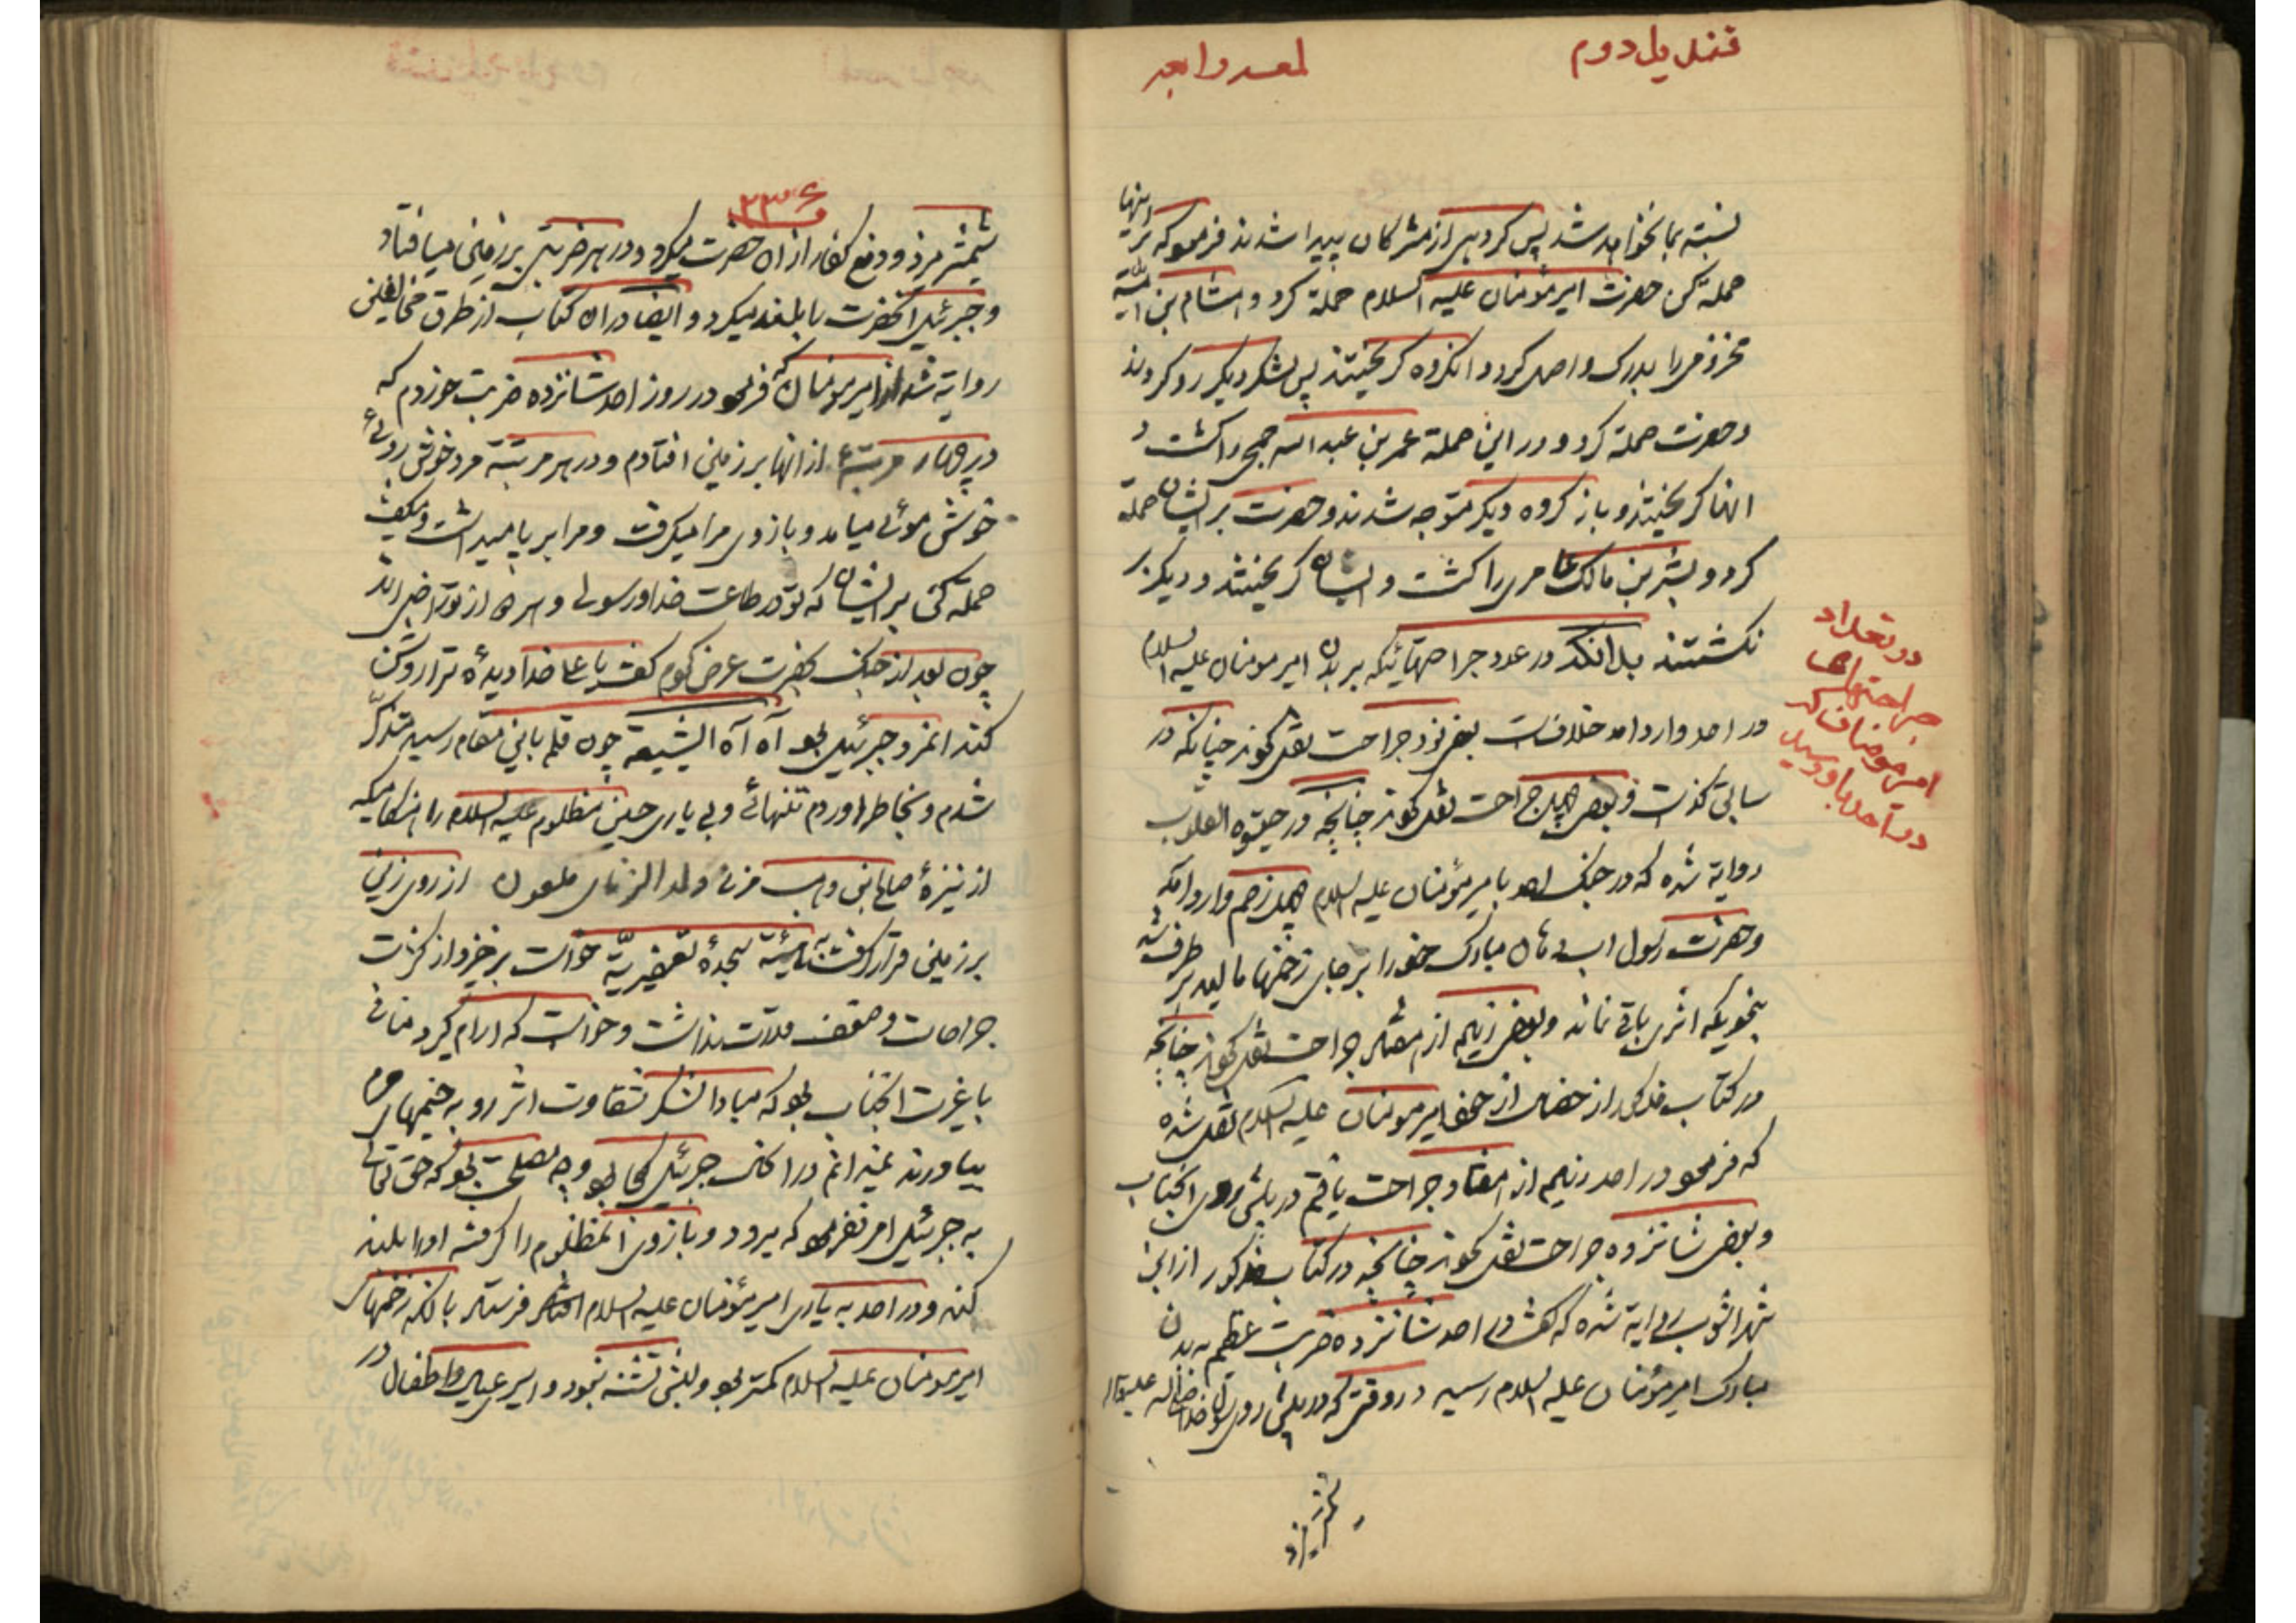 قندیل دوم
لمعه رابعه
نسبته بما نخواهد شد پس گروهی از مشرکان پیدا شدند فرمود که بر اینها
حمله کن حضرت امیر مؤمنان علیه السلام حملة کرد و هشام بن امیه
مخزومی را بدرک واصل کرد و انگروه گریختند پس لشکر دیگر رو کردند
و حضرت حملة کرد و در این حملة عمر بن عبد الله جمحی را کشت و
انها گریختند و باز گروه دیگر متوجه شدند و حضرت بر ایشان حملة
کرد و بشر بن مالک عامری را کشت و ایشان گریختند و دیگر بر
نگشتند بدانکه در عدد جراحتهائیکه بر بدن امیر مومنان علیه السلام
در احد وارد آمد خلافست بعضی نود جراحت نقل کردند چنانکه در
سابق گذشت و بعضی چهل جراحت نقل کردند چنانچه در حیوة القلوب
روایة شده که در جنک احد بامیر مؤمنان علیه السلام چهل زخم وارد آمد
و حضرت رسول اب دهان مبارک خود را بر جای زخمها مالید بر طرف شد
بنحویکه اثری باقی نماند و بعضی زیاده از هفتاد جراحت نقل کردند چنانچه
در کتاب مذکور از خصال از خود امیر مومنان علیه السلام نقل شده
که فرمود در احد زیاده از هفتاد جراحت یافتم در پیش روی انجناب
و بعضی شانزده جراحت نقل کردند چنانچه در کتاب مذکور از ابن
شهر اشوب روایة شده که گفت در احد شانزده ضربت عظیم به بدن
مبارک امیر مؤمنان علیه السلام رسید در وقتی که در پیش روی رسول خدا صلی الله علیه و اله
شمشیر میزد
در تعداد
جراحتهای
امیر مومنان که
در احد باو رسید
۲۳۶
شمشیر میزد و دفع کفار از ان حضرت میکرد و در هر ضربتی بر زمین میافتاد
و جبرئیل انحضرت را بلند میکرد و ایضا در ان کتاب از طرق مخالفین
روایة شد از امیر مومنان که فرمود در روز احد شانزده ضربت خوردم که
در چهار مرتبه از انها بر زمین افتادم و در هر مرتبة مرد خوش روئی
خوش موئی میامد و بازوی مرا میگرفت و مرا بر پا میداشت و میگفت
حملة کن بر ایشان که تو در طاعت خدا و رسولی و هر دو از تو راضی اند
چون بعد از جنک بحضرت عرض کردم گفت یا علی خدا دیدهٔ ترا روشن
کند انمرد جبرئیل بود آه آه ایشیعة چون قلم باین مقام رسید متذکر
شدم و بخاطر اوردم تنهائی و بی یاری حسین مظلوم علیه السلام را هنگامیکه
از نیزهٔ صالح بن وهب مزنی ولد الزنای ملعون از روی زین
بر زمین قرار گرفت بهیئة سجدهٔ تعفیریّة خواست برخیزد از کثرت
جراحات و ضعف قدرت نداشت و خواست که ارام گیرد منافی
با غیرت انجناب بود که مبادا لشکر شقاوت اثر رو به خیمهای حرم
بیاورند نمیدانم در انگاه جبرئیل کجا بود و چه مصلحت بود که حق تعالی
به جبرئیل امر نفرمود که برود و بازوی انمظلوم را گرفته او را بلند
کند و در احد به یاری امیر مؤمنان علیه السلام او را فرستاد با انکه زخمهای
امیر مومنان علیه السلام کمتر بود و لبش تشنه نبود و اسیری عیال و اطفال در